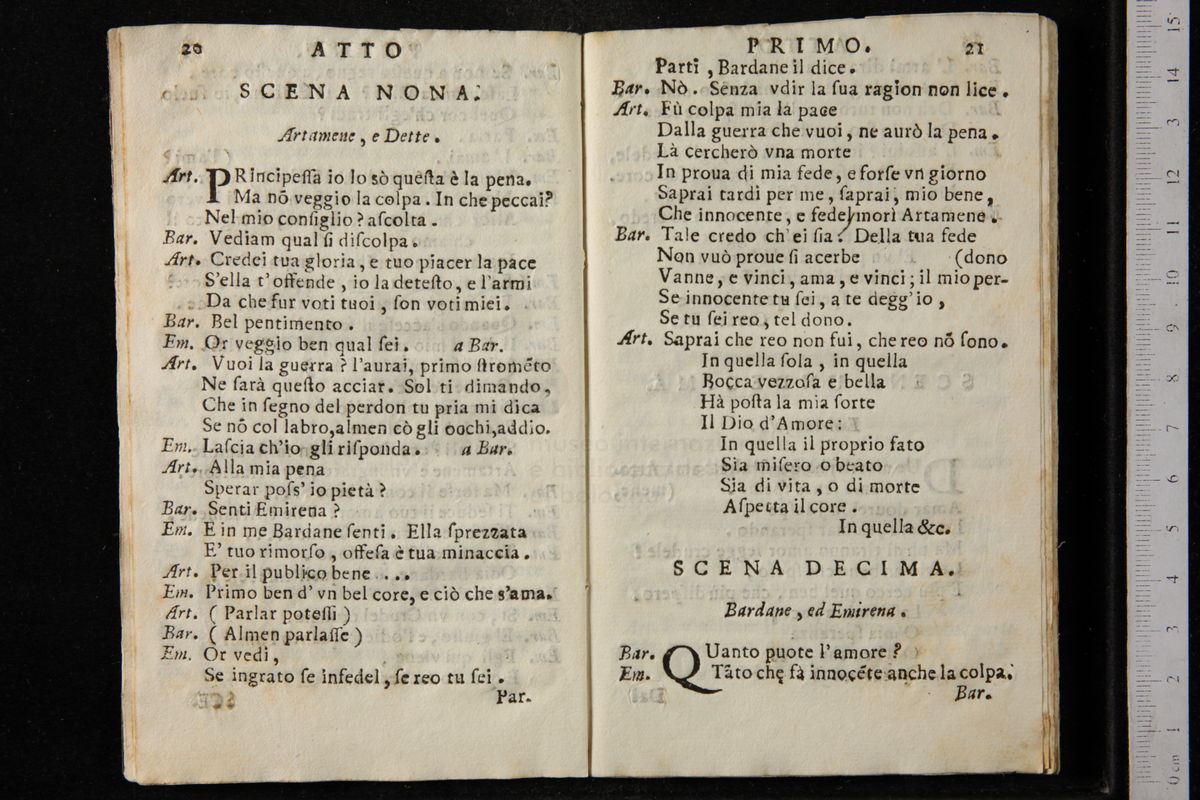 20 ATTO
SCENA NONA.
Artamene, e Dette.
Art. PRincipeſſa io lo sò queſta è la pena.
Ma nō veggio la colpa. In che peccai?
Nel mio conſiglio? aſcolta.
Bar. Vediam qual ſi diſcolpa.
Art. Credei tua gloria, e tuo piacer la pace
S'ella t'offende, io la deteſto, e l'armi
Da che fur voti tuoi, ſon voti miei.
Bar. Bel pentimento.
Em. Or veggio ben qual ſei. a Bar.
Art. Vuoi la guerra? l'aurai, primo ſtromēto
Ne ſarà queſto acciar. Sol ti dimando,
Che in ſegno del perdon tu pria mi dica
Se nō col labro, almen cò gli occhi, addio.
Em. Laſcia ch'io gli riſponda. a Bar.
Art. Alla mia pena
Sperar poſs'io pietà?
Bar. Senti Emirena?
Em. E in me Bardane ſenti. Ella ſprezzata
E' tuo rimorſo, offeſa è tua minaccia.
Art. Per il publico bene....
Em. Primo ben d'vn bel core, e ciò che s'ama.
Art. (Parlar poteſſi)
Bar. (Almen parlaſſe)
Em. Or vedi,
Se ingrato ſe infedel, ſe reo tu ſei.
Par.
PRIMO. 21
Parti, Bardane il dice.
Bar. Nò. Senza vdir la ſua ragion non lice.
Art. Fù colpa mia la pace
Dalla guerra che vuoi, ne aurò la pena.
Là cercherò vna morte
In proua di mia fede, e forſe vn giorno
Saprai tardi per me, ſaprai, mio bene,
Che innocente, e fedel morì Artamene.
Bar. Tale credo ch'ei ſia. Della tua fede
Non vuò proue ſi acerbe (dono
Vanne, e vinci, ama, e vinci; il mio per-
Se innocente tu ſei, a te degg'io,
Se tu ſei reo, tel dono.
Art. Saprai che reo non fui, che reo nō ſono.
In quella ſola, in quella
Bocca vezzoſa e bella
Hà poſta la mia ſorte
Il Dio d'Amore:
In quella il proprio fato
Sia miſero o beato
Sia di vita, o di morte
Aſpetta il core.
In quella &c.
SCENA DECIMA.
Bardane, ed Emirena.
Bar. QUanto puote l'amore?
Em. Tāto che fà innocēte anche la colpa.
Bar.